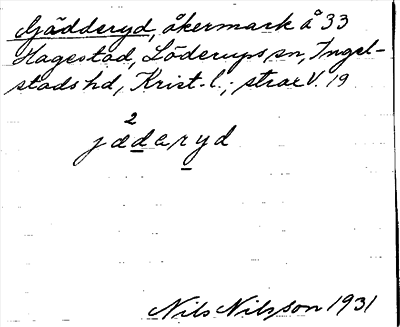 Gädderyd, åkermark å 33
Hagestad, Löderups sn, Ingel-
stads hd, Krist. l.; strax V. 19
2
jæderyd
Nils Nilsson 1931